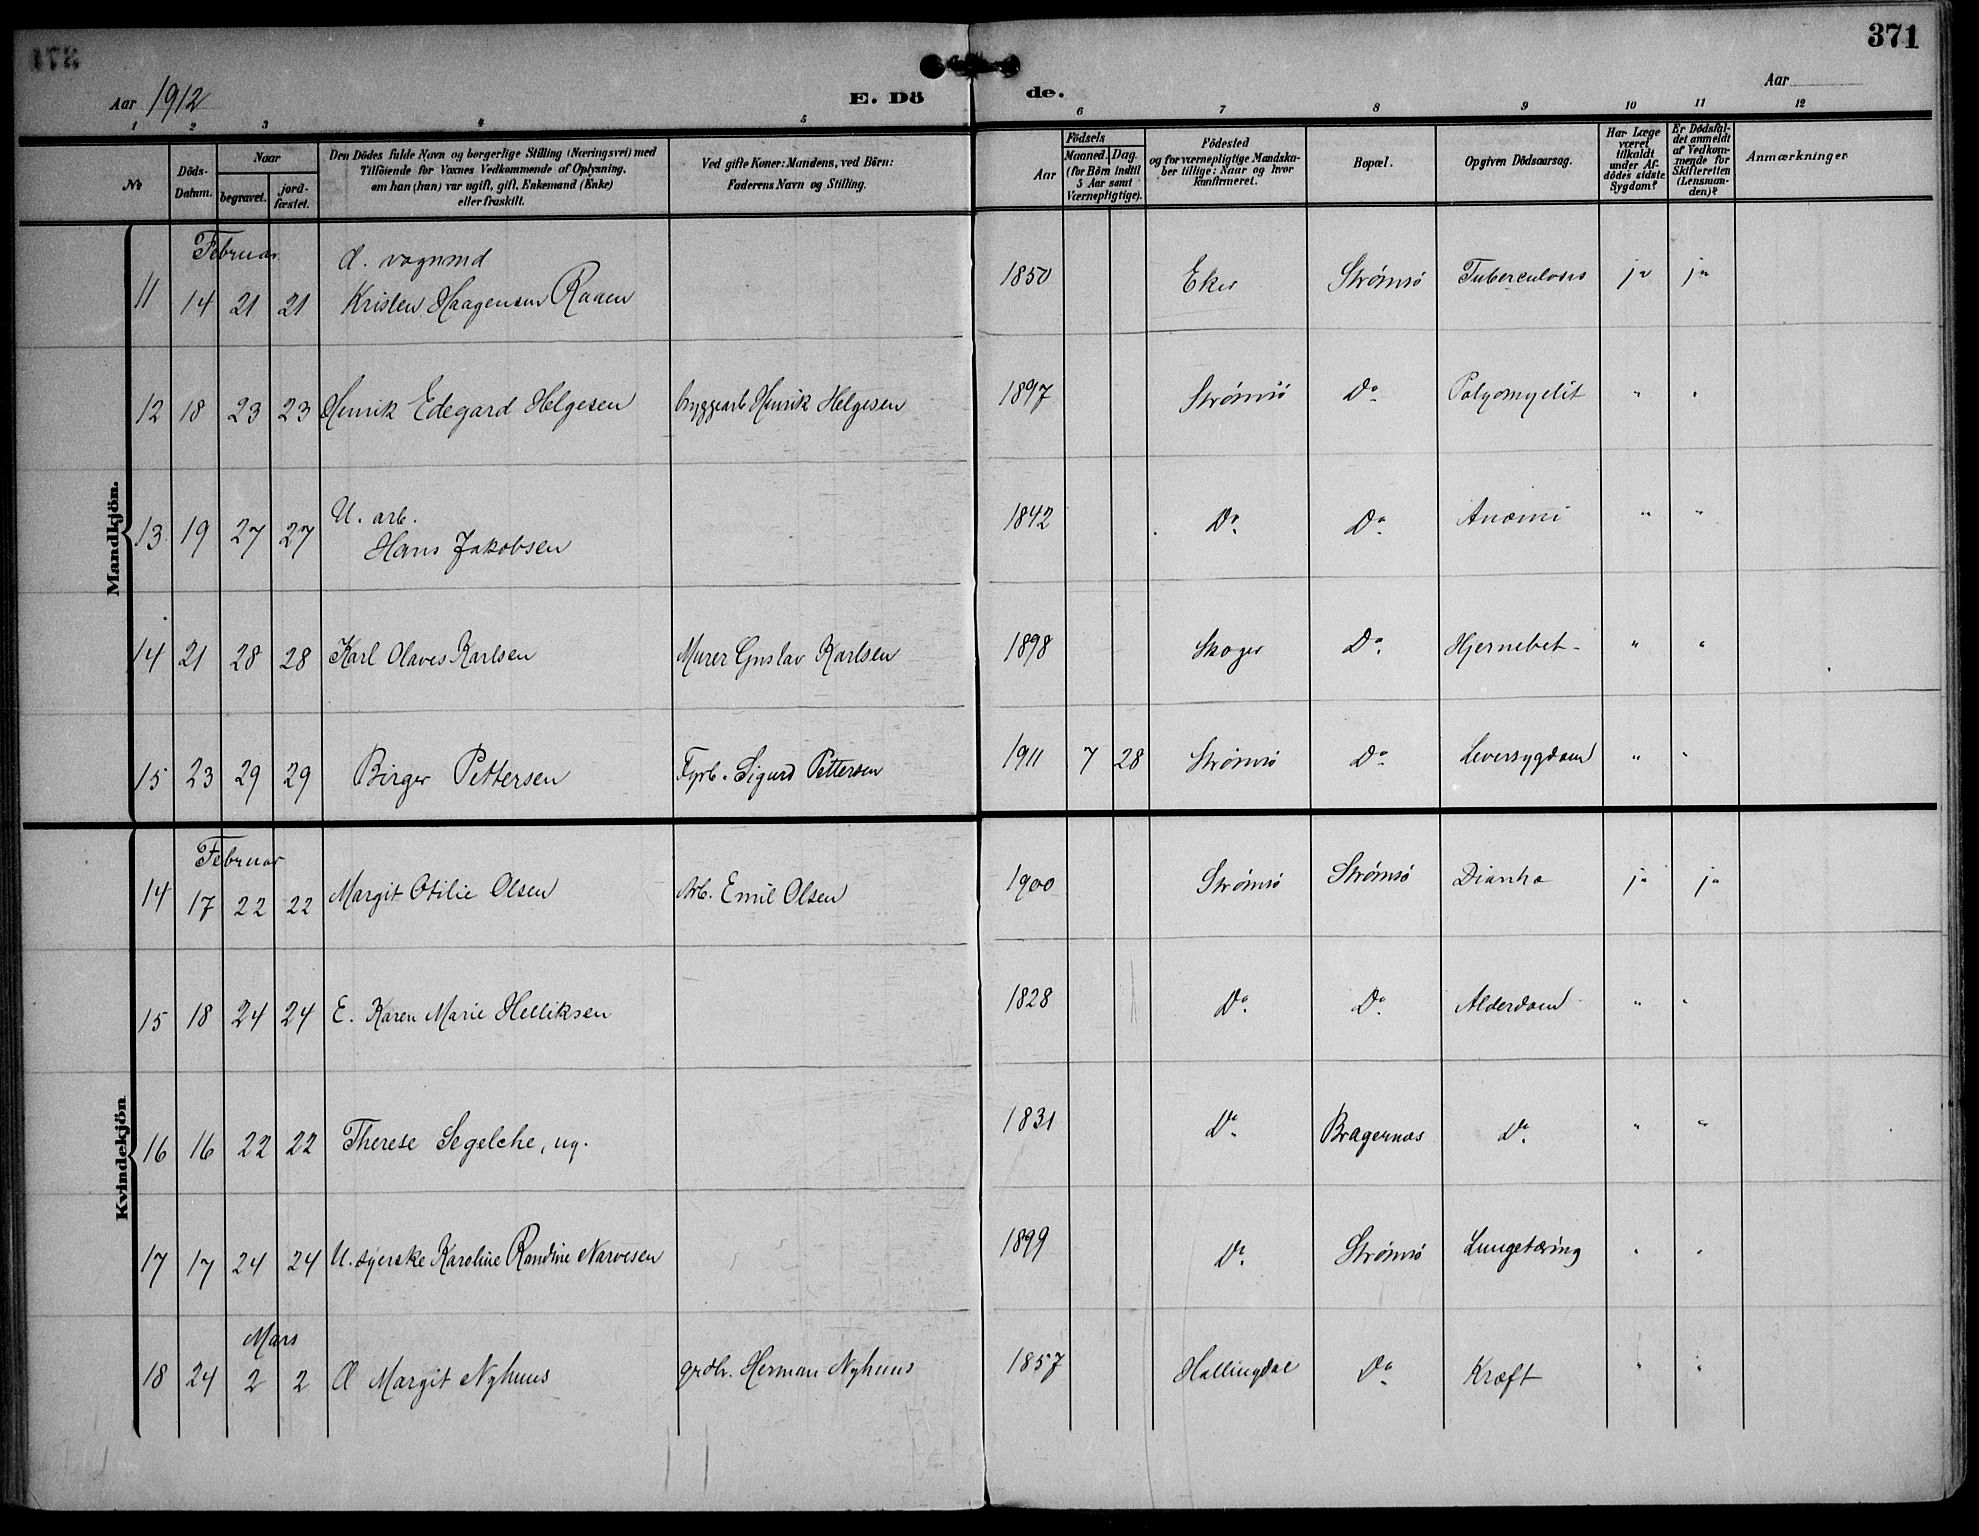 371
Aar 1912 E. Dö de. Aar
1 2 3 4 5 6 7 8 9 10 11 12
№ Döds-Datum. Naar begravet. jord-fæstet. Den Dödes fulde Navn og borgerlige Stilling (Næringsvei) med Tilföiende for Voxnes Vedkommende af Oplysning, om han (hun) var ugift, gift, Enkemand (Enke) eller fraskilt. Ved gifte Koner: Mandens, ved Börn: Faderens Navn og Stilling. Födsels Aar Maaned. Dag. (for Börn indtil 5 Aar samt Værnepligtige). Födested og for værnepligtige Mandska-ber tillige: Naar og hvor konfirmeret. Bopæl. Opgiven Dödsaarsag. Har Læge været tilkaldt under Af-dödes sidste Sygdom? Er Dödsfal-det anmeldt af Vedkom-mende for Skifteretten (Lensman-den)? Anmærkninger
Mandkjön.
Februar
11 14 21 21 d. vognmd Kristen Haagensen Raaen 1850 Eker Strømsø Tuberculosis ja ja
12 18 23 23 Henrik Edegard Helgesen bryggearb Henrik Helgesen 1897 Strømsø Do. Polyomyelit " "
13 19 27 27 U. arb. Hans Jakobsen 1842 Do. Do. Anæmi " "
14 21 28 28 Karl Olaves Karlsen Murer Gustav Karlsen 1898 Skoger Do. Hjernebet- " "
15 23 29 29 Birger Pettersen Fyrb. Sigurd Pettersen 1911 7 28 Strømsø Do. Leversygdom " "
Kvindekjön
Februar
14 17 22 22 Margit Otilie Olsen Arb. Emil Olsen 1900 Strømsø Strømsø Diarrhø ja ja
15 18 24 24 E. Karen Marie Helliksen 1828 Do. Do. Alderdom " "
16 16 22 22 Therese Segelche, ug. 1831 Do. Bragernæs Do. " "
17 17 24 24 U. syerske Karoline Randine Narvesen 1899 Do. Strømsø Lungetæring " "
Mars
18 24 2 2 Margit Nyhuus Herman Nyhuus 1857 Hallingdal Do. Kræft " "